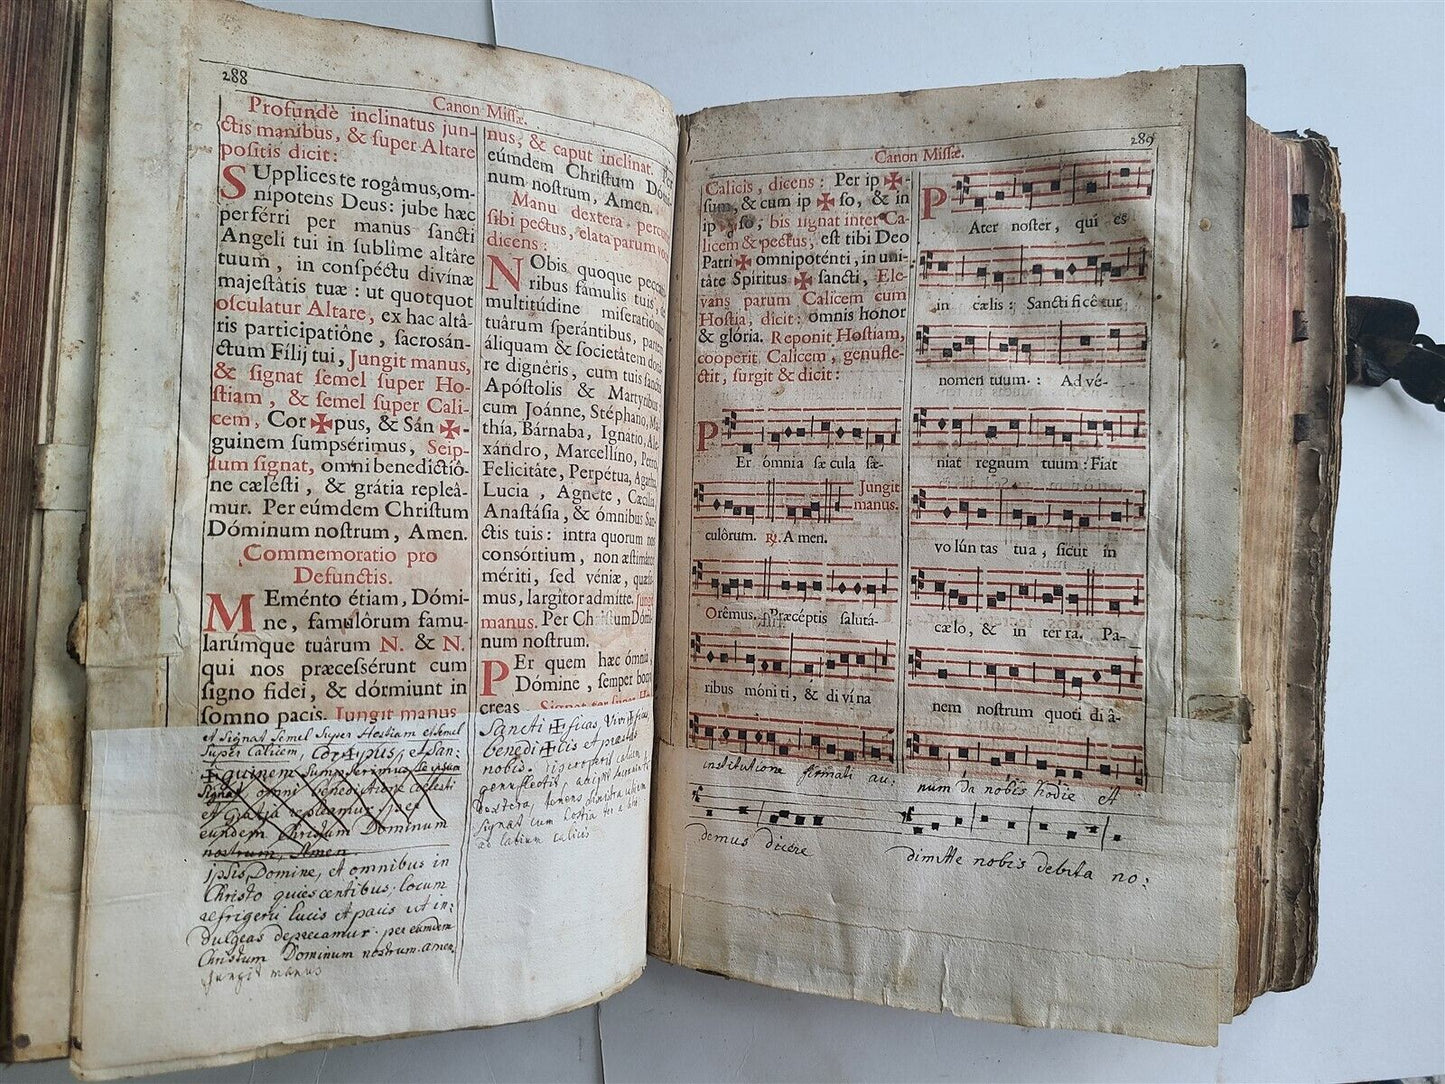 288
Canon Missæ.
Profundè inclinatus jun-
ctis manibus, & super Altare
positis dicit:
SUpplices te rogâmus, om-
nipotens Deus: jube hæc
perférri per manus sancti
Angeli tui in sublime altâre
tuum, in conspéctu divínæ
majestâtis tuæ: ut quotquot
osculatur Altare, ex hac altâ-
ris participatiône, sacrosán-
ctum Fílij tui, Jungit manus,
& signat semel super Ho-
stiam, & semel super Cali-
cem, Cor✠pus, & Sán✠-
guinem sumpsérimus, Seip-
sum signat, omni benedictiô-
ne cælésti, & grátia repleâ-
mur. Per eúmdem Christum
Dóminum nostrum, Amen.
Commemoratio pro
Defunctis.
MEménto étiam, Dómi-
ne, famulôrum famu-
larúmque tuârum N. & N.
qui nos præcessérunt cum
signo fidei, & dórmiunt in
somno pacis. Jungit manus
et signat semel super Hostiam et semel
super Calicem, Cor✠pus, et San:
✠guinem sumpserimus se ipsum
signat omni benedictione cælesti
et gratia repleamur per
eundem Christum Dominum
nostrum, Amen
ipsis Domine, et omnibus in
Christo quiescentibus locum
refrigerii lucis et pacis ut in:
dulgeas deprecamur. per eumdem
Christum Dominum nostrum. amen
Jungit manus
nus, & caput inclinat. Per
eúmdem Christum Dómi-
num nostrum, Amen.
Manu dextera percutit
sibi pectus, elata parum voce
dicens:
NObis quoque peccatô-
ribus fámulis tuis, de
multitúdine miseratiónum
tuârum sperántibus, partem
áliquam & societâtem donâ-
re dignêris, cum tuis sanctis
Apóstolis & Martyribus
cum Joánne, Stéphano, Ma-
thía, Bárnaba, Ignatio, Ale-
xándro, Marcellíno, Petro,
Felicitâte, Perpétua, Agatha,
Lucia, Agnete, Cæcilia,
Anastásia, & ómnibus San-
ctis tuis: intra quorum nos
consórtium, non æstimâtor
mériti, sed véniæ, quæsu-
mus, largîtor admitte. Jungit
manus. Per Christum Dómi-
num nostrum.
PEr quem hæc ómnia,
Dómine, semper bona
creas Signat ter super Ho-
Sancti✠ficas, Vivi✠ficas,
benedi✠cis et præstas
nobis.
genuflectit,
dextera,
signat cum Hostia ter a labio
ad labium calicis
289
Canon Missæ.
Calicis, dicens: Per ip✠-
sum, & cum ip✠so, & in
ip✠so, bis signat inter Ca-
licem & pectus, est tibi Deo
Patri✠omnipoténti, in uni-
tâte Spiritus ✠ sancti, Ele-
vans parum Calicem cum
Hostia, dicit: omnis honor
& glória. Reponit Hostiam,
cooperit Calicem, genufle-
ctit, surgit & dicit:
PEr ómnia sæ cula sæ-
Jungit
manus.
culôrum. ℟. A men.
Orêmus. Præcéptis salutá-
ribus móni ti, & di vína
institutione formati au:
demus dicere
PAter noster, qui es
in cælis: Sancti ficé tur
nomen tuum: Ad vé-
niat regnum tuum: Fiat
vo lún tas tua, sicut in
cælo, & in ter ra. Pa-
nem nostrum quoti di â-
num da nobis hodie et
dimitte nobis debita no: